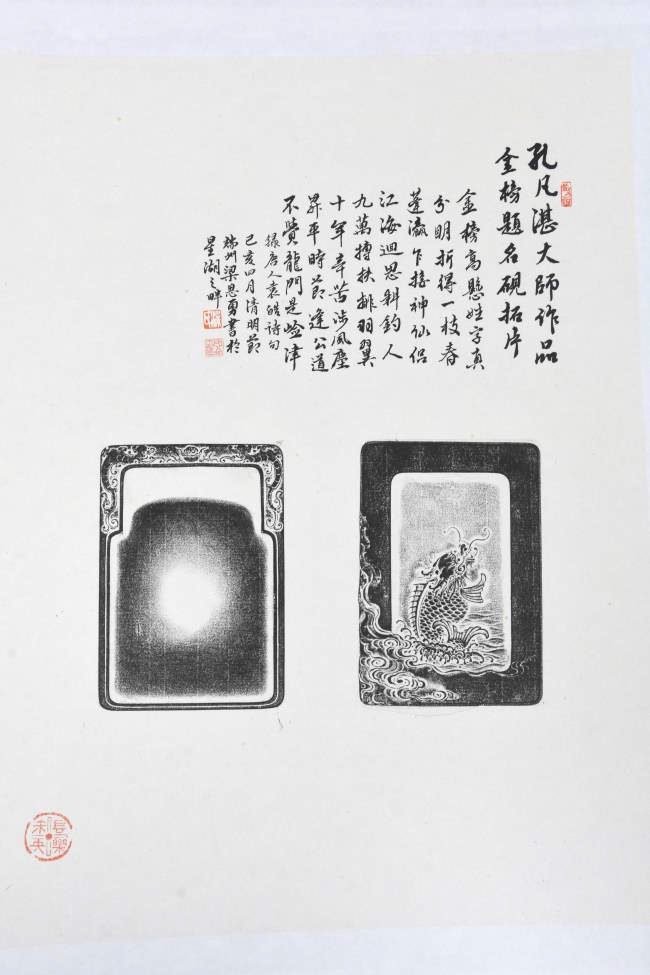 孔凡湛大師作品
金榜題名硯拓片
金榜高懸姓字真
分明折得一枝春
蓬瀛乍接神仙侶
江海迴思耕釣人
九萬摶扶排羽翼
十年辛苦涉風塵
昇平時節逢公道
不覺龍門是嶮津
錄唐人袁皓詩句
己亥四月清明節
端州梁恩勇書於
星湖之畔